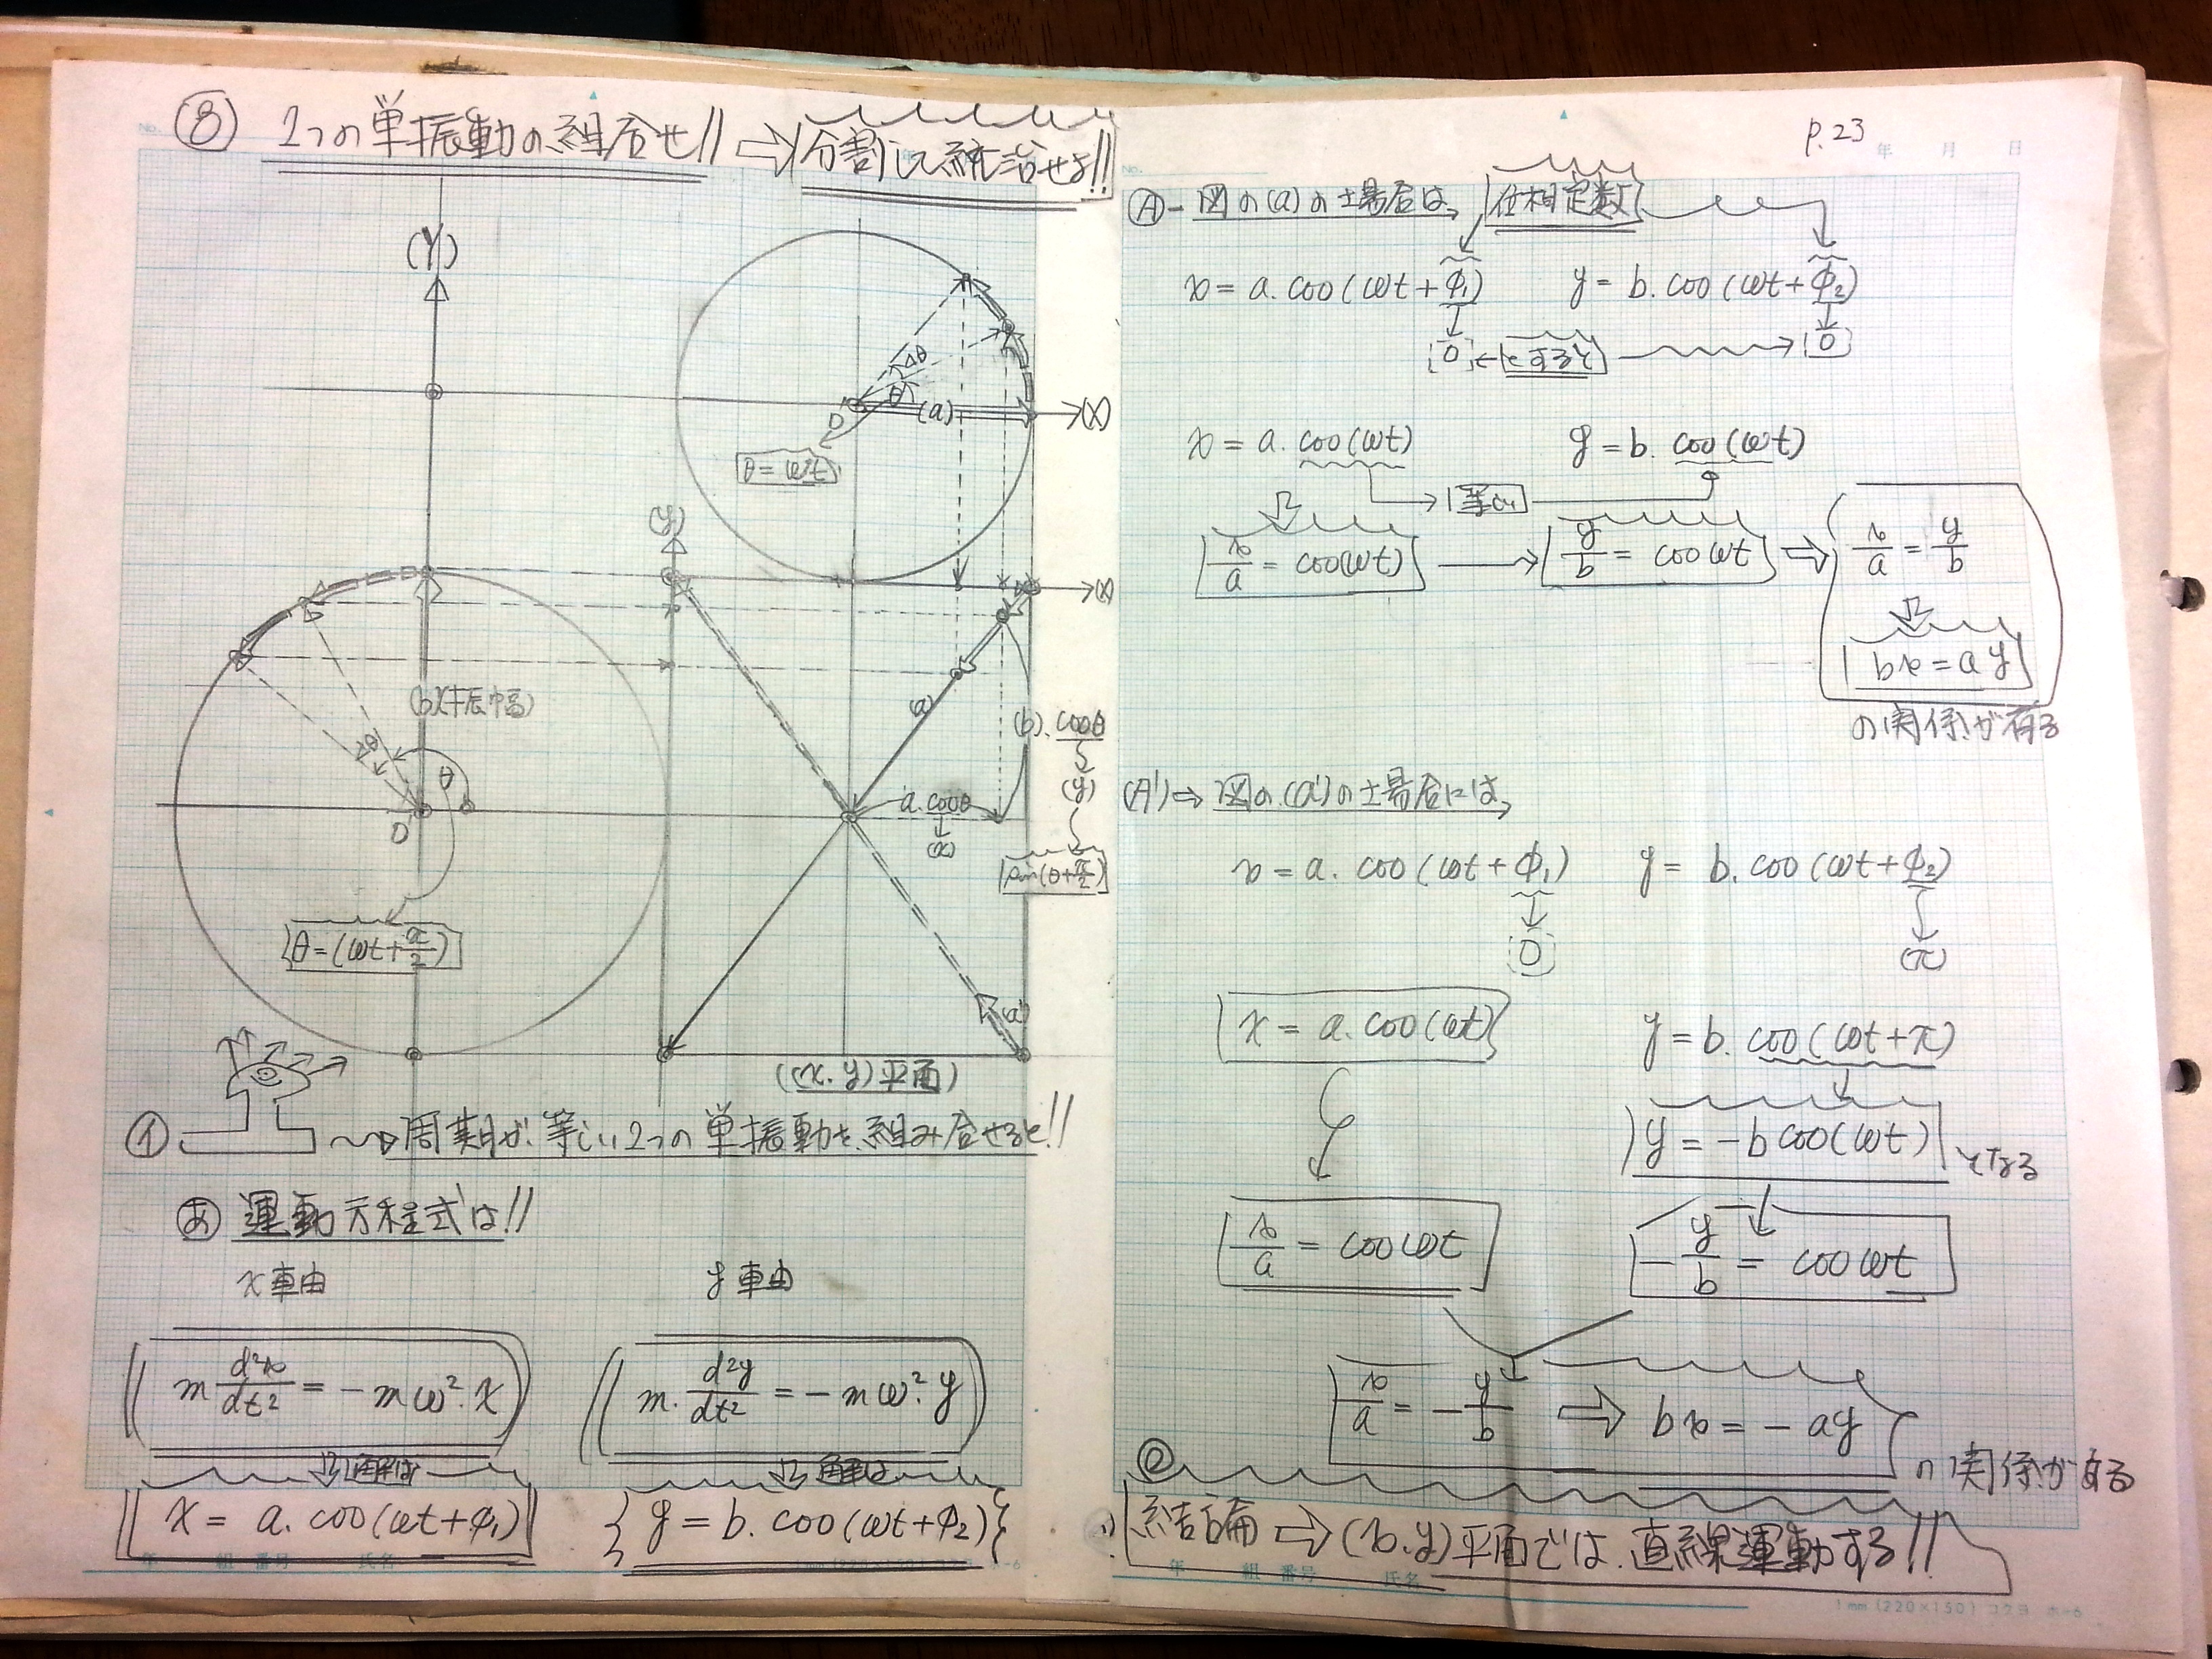 ⑧ 2つの単振動の組合せ!! ⇨ 分割して統治せよ!!
(Y)
Δθ
θ
(a)
O
(X)
θ=ωt
(y)
(x)
(b)(振巾富)
Δθ
θ
O
(a)
a.cosθ
(x)
(b).cosθ
(y)
sin(θ+π/2)
θ=(ωt+π/2)
(a')
((x.y)平面)
① 周期が等しい2つの単振動を組み合せると!!
あ 運動方程式は!!
x軸 y軸
m d²x/dt² = -mω².x m. d²y/dt² = -mω².y
解は 解は
x = a.cos(ωt+φ₁) y = b.cos(ωt+φ₂)
P.23
年 月 日
Ⓐ- 図の(a)の場合は、位相定数
x = a.cos(ωt+φ₁) y = b.cos(ωt+φ₂)
0 ← とすると → 0
x = a.cos(ωt) y = b.cos(ωt)
等しい
x/a = cos(ωt) → y/b = cosωt ⇨ x/a = y/b
bx = ay
の関係が有る
(A')⇨ 図の(a')の場合には、
x = a.cos(ωt+φ₁) y = b.cos(ωt+φ₂)
0 (π)
x = a.cos(ωt) y = b.cos(ωt+π)
y = -b cos(ωt) となる
x/a = cosωt -y/b = cosωt
x/a = -y/b ⇨ bx = -ay の関係が有る
結論 ⇨ (x.y)平面では.直線運動する!!
年 組 番号 氏名
年 組 番号 氏名
1mm (220×150) コクヨ ホ-6